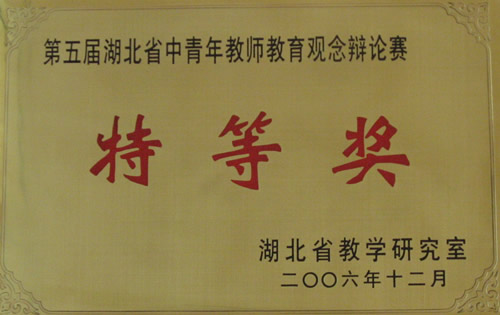 第五届湖北省中青年教师教育观念辩论赛
特等奖
湖北省教学研究室
二〇〇六年十二月